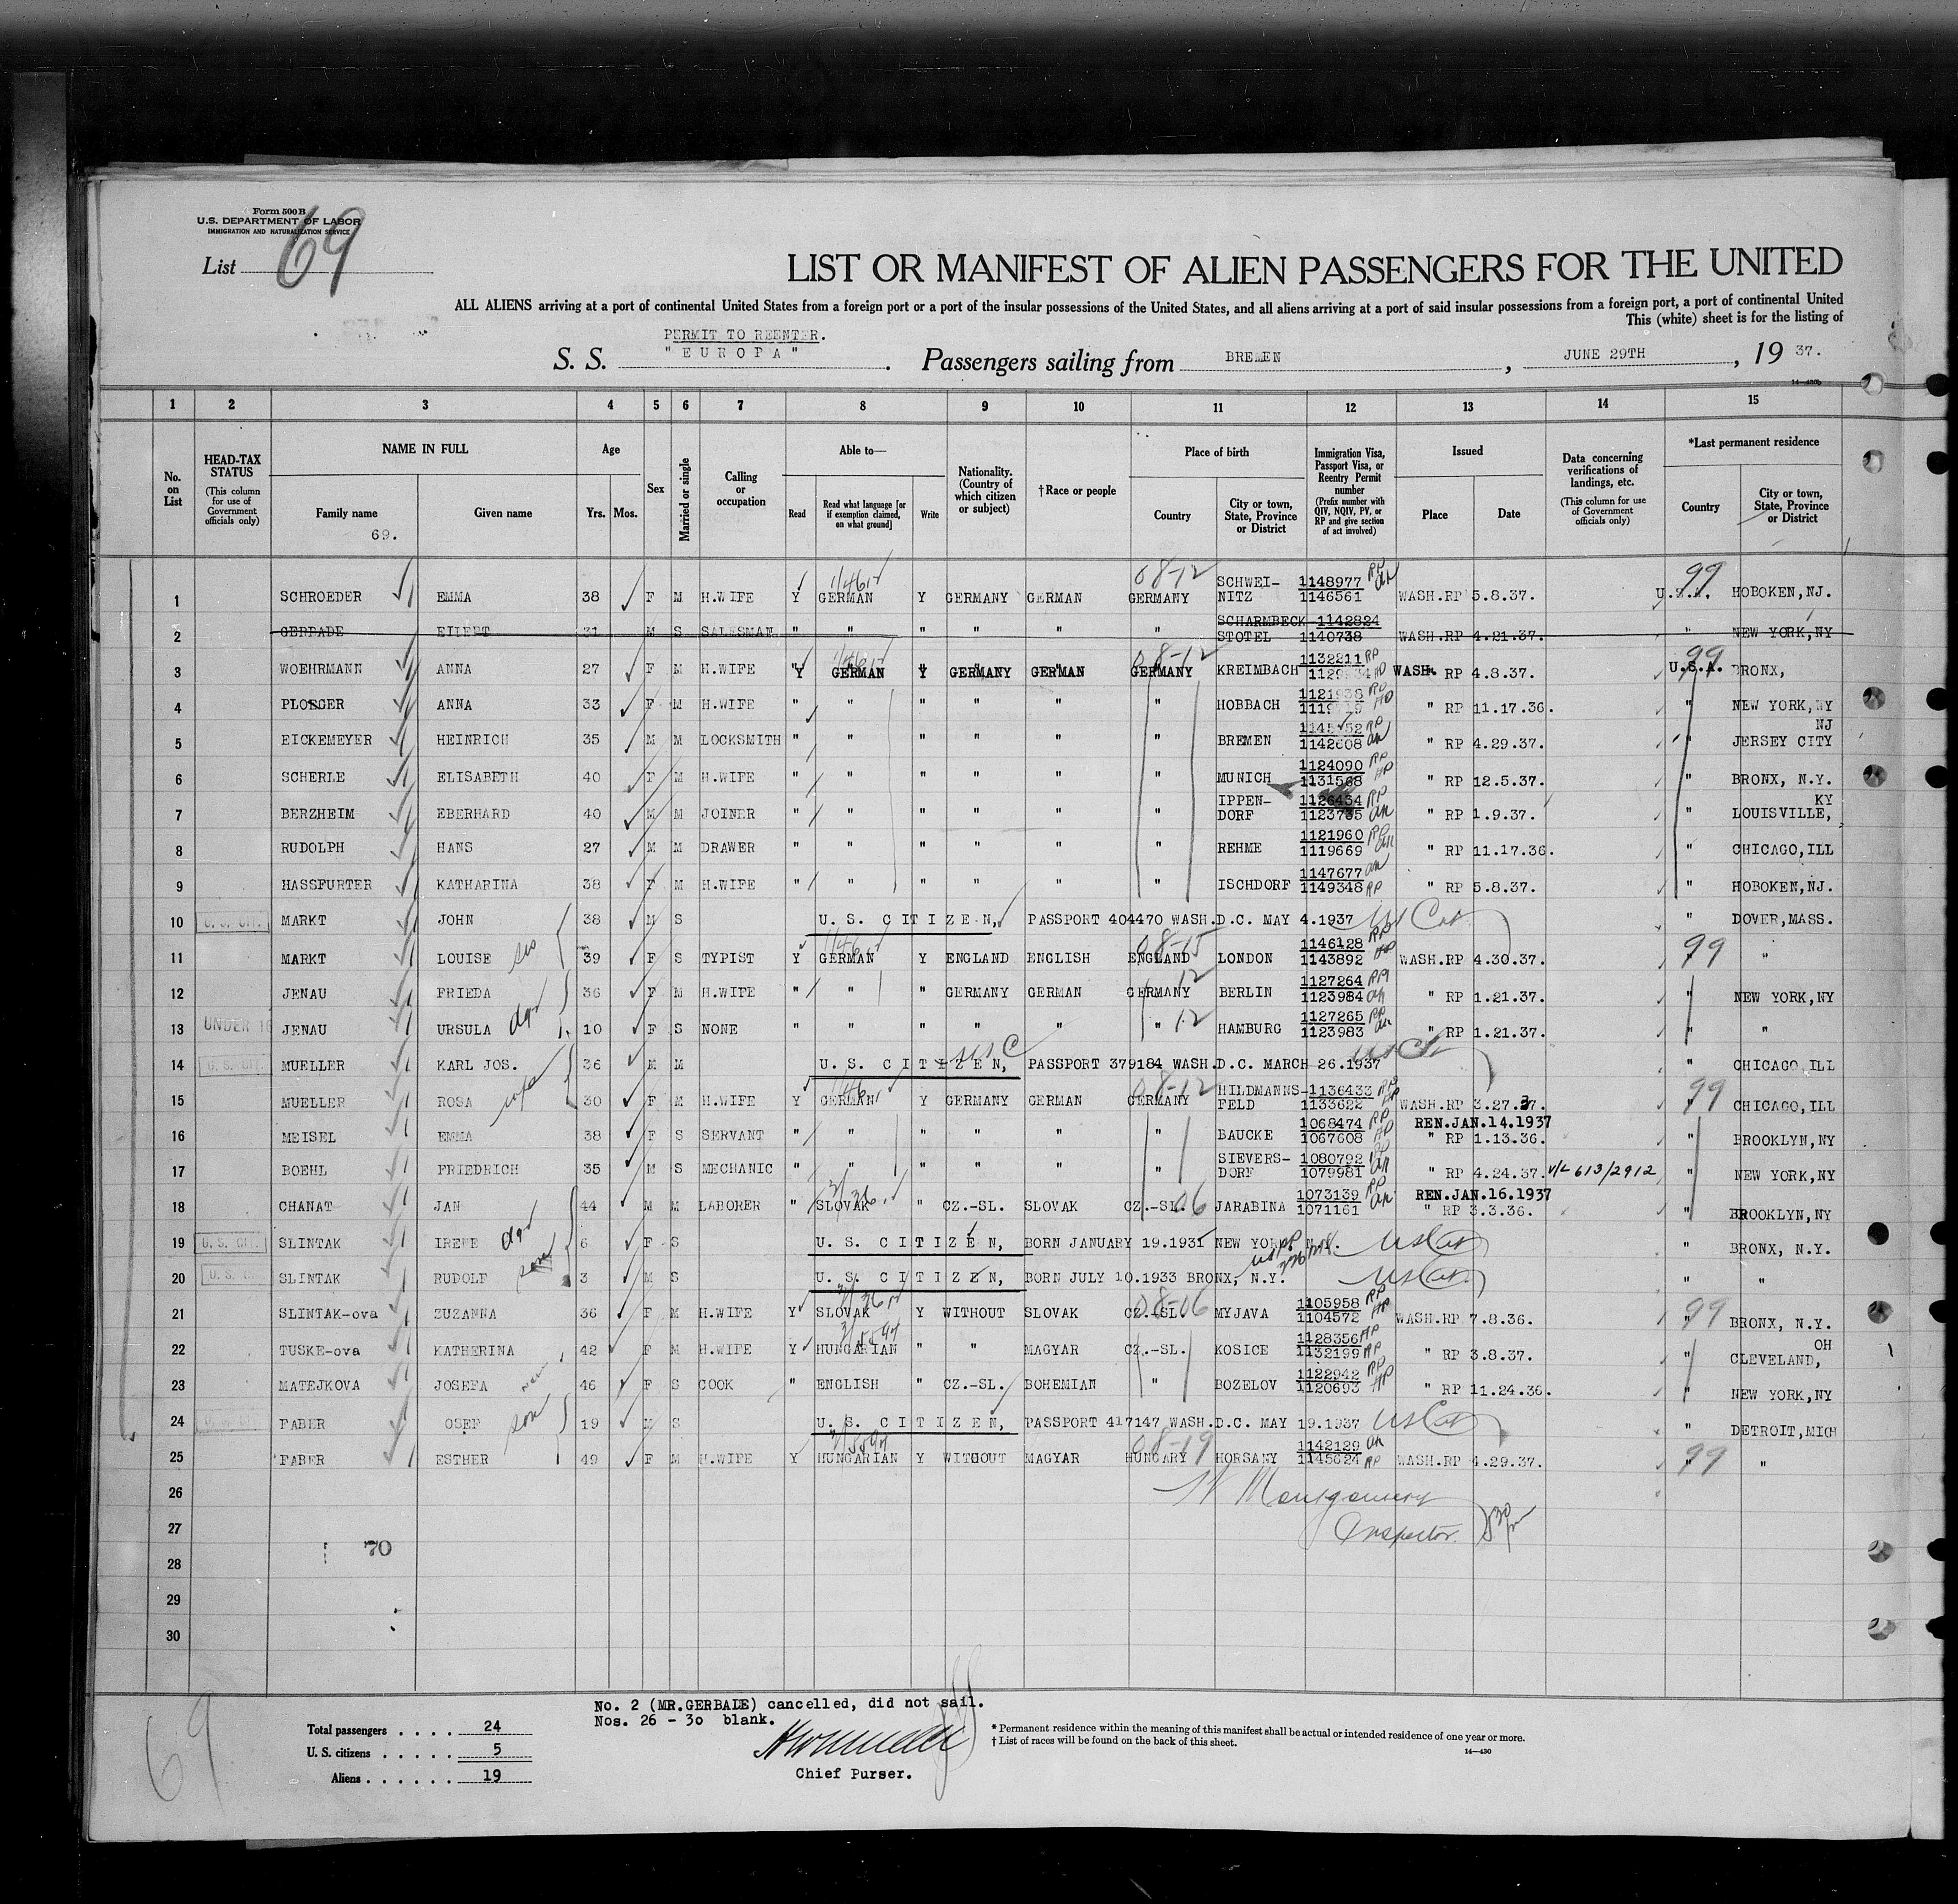 Form 500 B
U.S. DEPARTMENT OF LABOR
IMMIGRATION AND NATURALIZATION SERVICE
List 69
LIST OR MANIFEST OF ALIEN PASSENGERS FOR THE UNITED
ALL ALIENS arriving at a port of continental United States from a foreign port or a port of the insular possessions of the United States, and all aliens arriving at a port of said insular possessions from a foreign port, a port of continental United
This (white) sheet is for the listing of
PERMIT TO REENTER.
S. S. "EUROPA". Passengers sailing from BREMEN, JUNE 29TH, 19 37.
14—430b
1 2 3 4 5 6 7 8 9 10 11 12 13 14 15
No. on List
HEAD-TAX STATUS (This column for use of Government officials only)
NAME IN FULL
Family name
69.
Given name
Age
Yrs. Mos.
Sex
Married or single
Calling or occupation
Able to—
Read
Read what language [or if exemption claimed, on what ground]
Write
Nationality. (Country of which citizen or subject)
†Race or people
Place of birth
Country
City or town, State, Province or District
Immigration Visa, Passport Visa, or Reentry Permit number (Prefix number with QIV, NQIV, PV, or RP and give section of act involved)
Issued
Place Date
Data concerning verifications of landings, etc. (This column for use of Government officials only)
*Last permanent residence
Country
City or town, State, Province or District
1 SCHROEDER EMMA 38 F M H.WIFE Y GERMAN Y GERMANY GERMAN GERMANY SCHWEI-NITZ 1148977 1146561 WASH.RP 5.8.37. U.S.A. HOBOKEN,NJ.
2 GERBADE EILERT 31 M S SALESMAN " " " " " " SCHARMBECK STOTEL 1142824 1140738 WASH.RP 4.21.37. " NEW YORK,NY
3 WOEHRMANN ANNA 27 F M H.WIFE Y GERMAN Y GERMANY GERMAN GERMANY KREIMBACH 1132211 WASH. RP 4.8.37. U.S.A. BRONX,
4 PLOEGER ANNA 33 F M H.WIFE " " " " " " HOBBACH " RP 11.17.36. " NEW YORK,NY
5 EICKEMEYER HEINRICH 35 M M LOCKSMITH " " " " " " BREMEN 1142608 " RP 4.29.37. " JERSEY CITY NJ
6 SCHERLE ELISABETH 40 F M H.WIFE " " " " " " MUNICH 1124090 1131568 " RP 12.5.37. " BRONX, N.Y.
7 BERZHEIM EBERHARD 40 M M JOINER " " " " " " IPPEN-DORF 1126434 1123735 " RP 1.9.37. " LOUISVILLE, KY
8 RUDOLPH HANS 27 M M DRAWER " " " " " " REHME 1121960 1119669 " RP 11.17.36. " CHICAGO,ILL
9 HASSFURTER KATHARINA 38 F M H.WIFE " " " " " " ISCHDORF 1147677 1149348 " RP 5.8.37. " HOBOKEN,NJ.
10 U. S. CIT. MARKT JOHN 38 M S U. S. CITIZEN, PASSPORT 404470 WASH.D.C. MAY 4.1937 US Cit " DOVER,MASS.
11 MARKT LOUISE sis 39 F S TYPIST Y GERMAN Y ENGLAND ENGLISH ENGLAND LONDON 1146128 1143892 WASH.RP 4.30.37. 99 "
12 JENAU FRIEDA 36 F M H.WIFE " " " GERMANY GERMAN GERMANY BERLIN 1127264 1123984 " RP 1.21.37. " NEW YORK,NY
13 UNDER 16 JENAU URSULA dgr 10 F S NONE " " " " " " HAMBURG 1127265 1123983 " RP 1.21.37. " "
14 U. S. CIT. MUELLER KARL JOS. 36 M M U. S. CITIZEN, PASSPORT 379184 WASH.D.C. MARCH 26.1937 " CHICAGO ILL
15 MUELLER ROSA wife 30 F M H.WIFE Y GERMAN Y GERMANY GERMAN GERMANY HILDMANNS-FELD 1136433 1133622 WASH.RP 3.27.37. 99 CHICAGO,ILL
16 MEISEL EMMA 38 F S SERVANT " " " " " " BAUCKE 1068474 1067608 REN.JAN.14.1937 " RP 1.13.36. " BROOKLYN,NY
17 BOEHL FRIEDRICH 35 M S MECHANIC " " " " " " SIEVERS-DORF 1080792 1079981 " RP 4.24.37. V/L 613/2912 " NEW YORK,NY
18 CHANAT JAN 44 M M LABORER " SLOVAK " CZ.-SL. SLOVAK CZ.-SL. JARABINA 1073139 1071161 REN.JAN.16.1937 " RP 3.3.36. " BROOKLYN,NY
19 U. S. CIT. SLINTAK IRENE dgr 6 F S U. S. CITIZEN, BORN JANUARY 19.1931 NEW YORK N.Y. US Cit " BRONX, N.Y.
20 U. S. C SLINTAK RUDOLF son 3 M S U. S. CITIZEN, BORN JULY 10.1933 BRONX, N.Y. US Cit " "
21 SLINTAK-ova ZUZANNA 36 F M H.WIFE Y SLOVAK Y WITHOUT SLOVAK CZ.-SL. MYJAVA 1105958 1104572 WASH.RP 7.8.36. 99 " BRONX, N.Y.
22 TUSKE-ova KATHERINA 42 F M H.WIFE Y HUNGARIAN " " MAGYAR CZ.-SL. KOSICE 1128356 1132199 " RP 3.8.37. " CLEVELAND, OH
23 MATEJKOVA JOSEFA 46 F S COOK " ENGLISH " CZ.-SL. BOHEMIAN " BOZELOV 1122942 1120693 " RP 11.24.36. " NEW YORK,NY
24 FABER OSEF son 19 M S U. S. CITIZEN, PASSPORT 417147 WASH.D.C. MAY 19.1937 US Cit " DETROIT,MICH
25 FABER ESTHER 49 F M H.WIFE Y HUNGARIAN Y WITHOUT MAGYAR HUNGARY HORSANY 1142129 1145624 WASH.RP 4.29.37. 99 "
26 Montgomery
27 Inspector
28 70
29
30
No. 2 (MR.GERBADE) cancelled, did not sail.
Nos. 26 - 30 blank.
Total passengers . . . . 24
U. S. citizens . . . . . 5
Aliens . . . . . . 19
Chief Purser.
* Permanent residence within the meaning of this manifest shall be actual or intended residence of one year or more.
† List of races will be found on the back of this sheet.
14—430
69